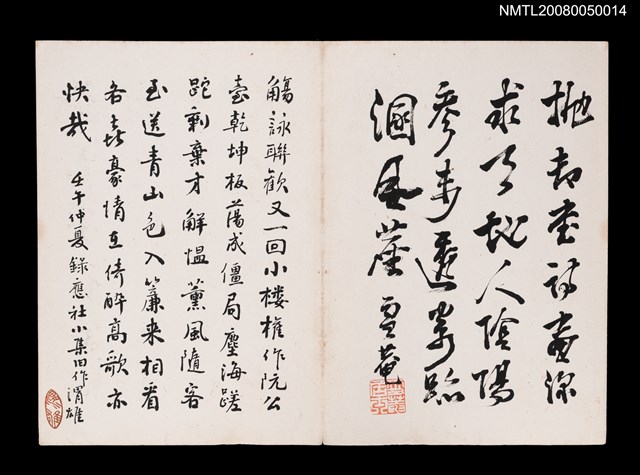 NMTL20080050014
拋却書詩畫深
求天地人陰陽
參未透寄跡
溷風塵 雪菴
觴詠聯歡又一回小楼權作阮公
臺乾坤板蕩成僵局塵海蹉
跎剩棄才解慍薰風隨客
至送青山色入簾來相看
各喜豪情在倚醉高歌亦
快哉 壬午仲夏錄應社小集旧作渭雄